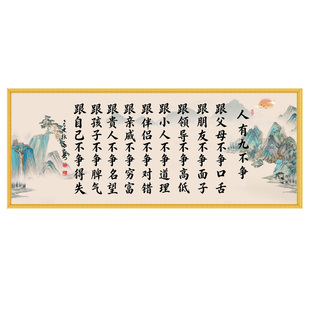 人有九不争
跟父母不争口舌
跟朋友不争面子
跟领导不争高低
跟小人不争道理
跟伴侣不争对错
跟亲戚不争穷富
跟贵人不争名望
跟孩子不争脾气
跟自己不争得失